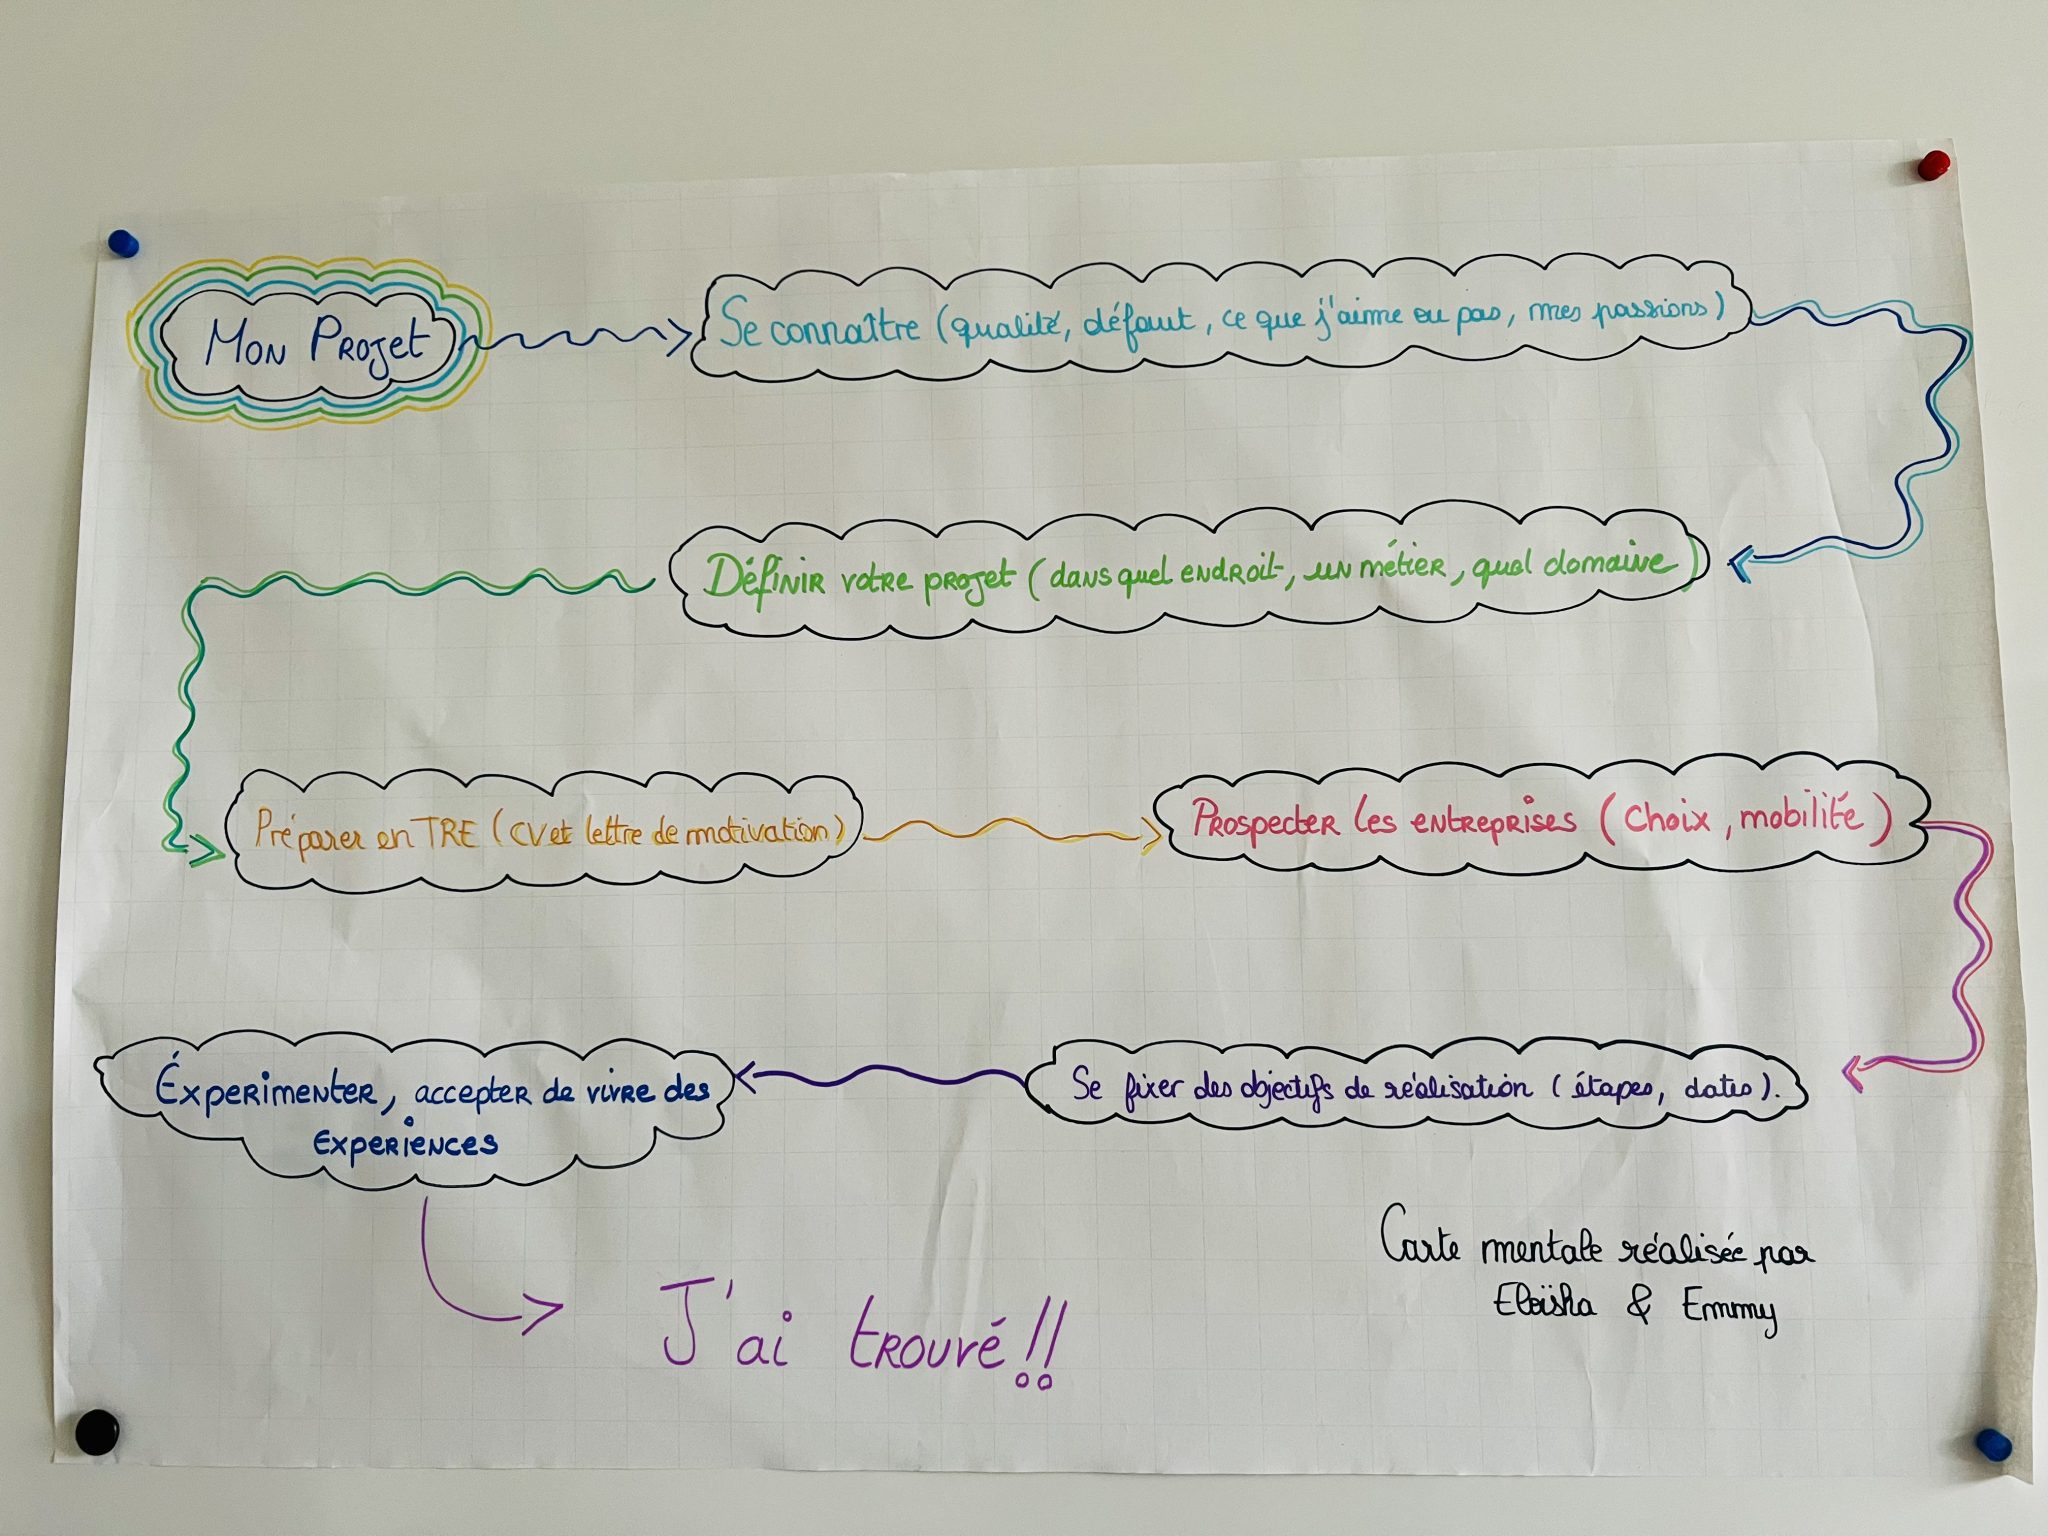 Mon Projet
Se connaître (qualité, défaut, ce que j'aime ou pas, mes passions)
Définir votre projet (dans quel endroit, un métier, quel domaine)
Préparer en TRE (CV et lettre de motivation)
Prospecter les entreprises (choix, mobilité)
Éxperimenter, accepter de vivre des
experiences
Se fixer des objectifs de réalisation (étapes, dates).
J'ai trouvé!!
Carte mentale réalisée par
Eloïsha & Emmy